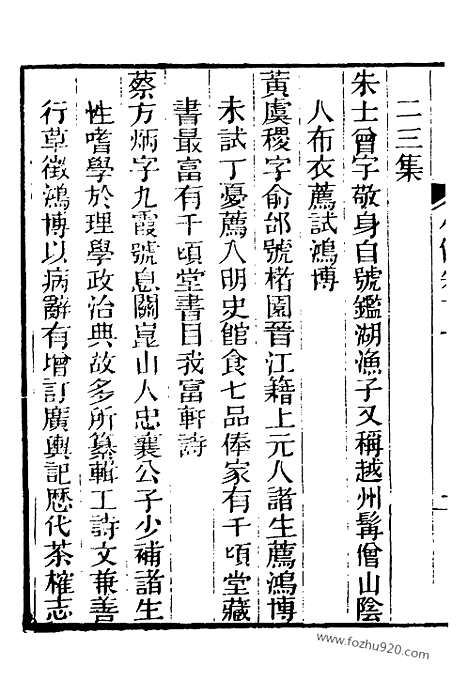 二三集
朱士曾字敬身自號鑑湖漁子又稱越州髯僧山陰
人布衣薦試鴻博
黃虞稷字俞邰號楮園晉江籍上元人諸生薦鴻博
未試丁憂薦入明史館食七品俸家有千頃堂藏
書最富有千頃堂書目我富軒詩
蔡方炳字九霞號息關崑山人忠襄公子少補諸生
性嗜學於理學政治典故多所纂輯工詩文兼善
行草徵鴻博以病辭有增訂廣輿記歷代茶榷志
www.fozhu920.com